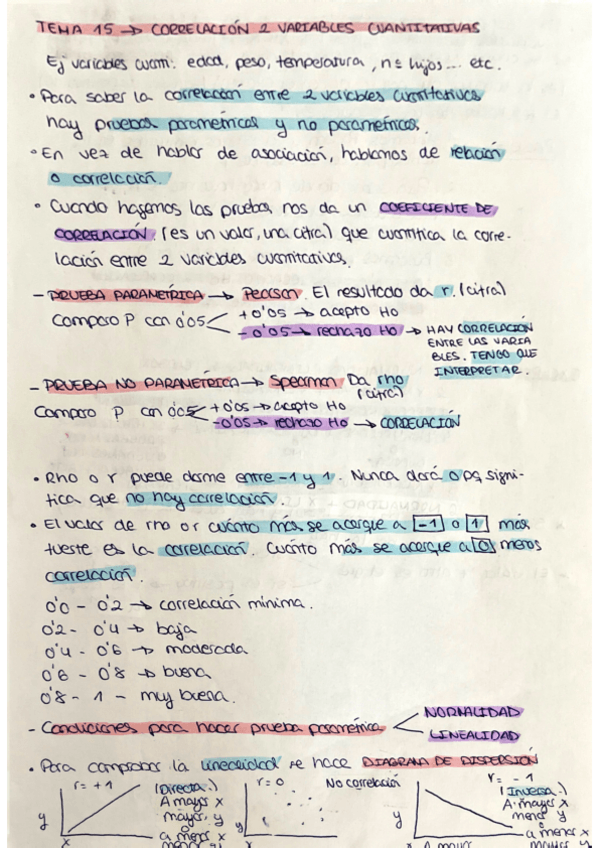 TEMA 15 → CORRELACIÓN 2 VARIABLES CUANTITATIVAS
Ej variables cuanti: edad, peso, temperatura, nº hijos... etc.
• Para saber la correlación entre 2 variables cuantitativas
hay pruebas parametricas y no parametricas.
• En vez de hablar de asociación, hablamos de relación
o correlación.
• Cuando hagamos las pruebas nos da un COEFICIENTE DE
CORRELACIÓN (es un valor, una cifra) que cuantifica la corre-
lación entre 2 variables cuantitativas.
- PRUEBA PARAMÉTRICA → Pearson. El resultado da r. (cifra)
Comparo P con 0'05 < +0'05 → acepto Ho
- 0'05 → rechazo Ho → HAY CORRELACIÓN
ENTRE LAS VARIA
BLES. TENGO QUE
INTERPRETAR.
- PRUEBA NO PARAMÉTRICA → Spearman Da rho
(cifra)
Comparo P con 0'05 < +0'05 → acepto Ho
-0'05 → rechazo Ho → CORRELACIÓN
• Rho o r puede darme entre -1 y 1. Nunca dará 0 pq signi-
fica que no hay correlación.
• El valor de rho o r cuánto más se acerque a -1 o 1 más
fuerte es la correlación. Cuánto más se acerque a 0 menos
correlación.
0'0 - 0'2 → correlación mínima.
0'2 - 0'4 → baja
0'4 - 0'6 → moderada
0'6 - 0'8 → buena
0'8 - 1 - muy buena.
- Condiciones para hacer prueba paramétrica < NORMALIDAD
LINEALIDAD
• Para comprobar la linealidad se hace DIAGRAMA DE DISPERSIÓN
r = +1 (Directa.)
A mayor x
mayor y
a menor x
menor y
y
x
r = 0 No correlación
y
x
r = -1
(Inversa.)
A mayor x
menor y
a menor x
mayor y
y
x
A mayor